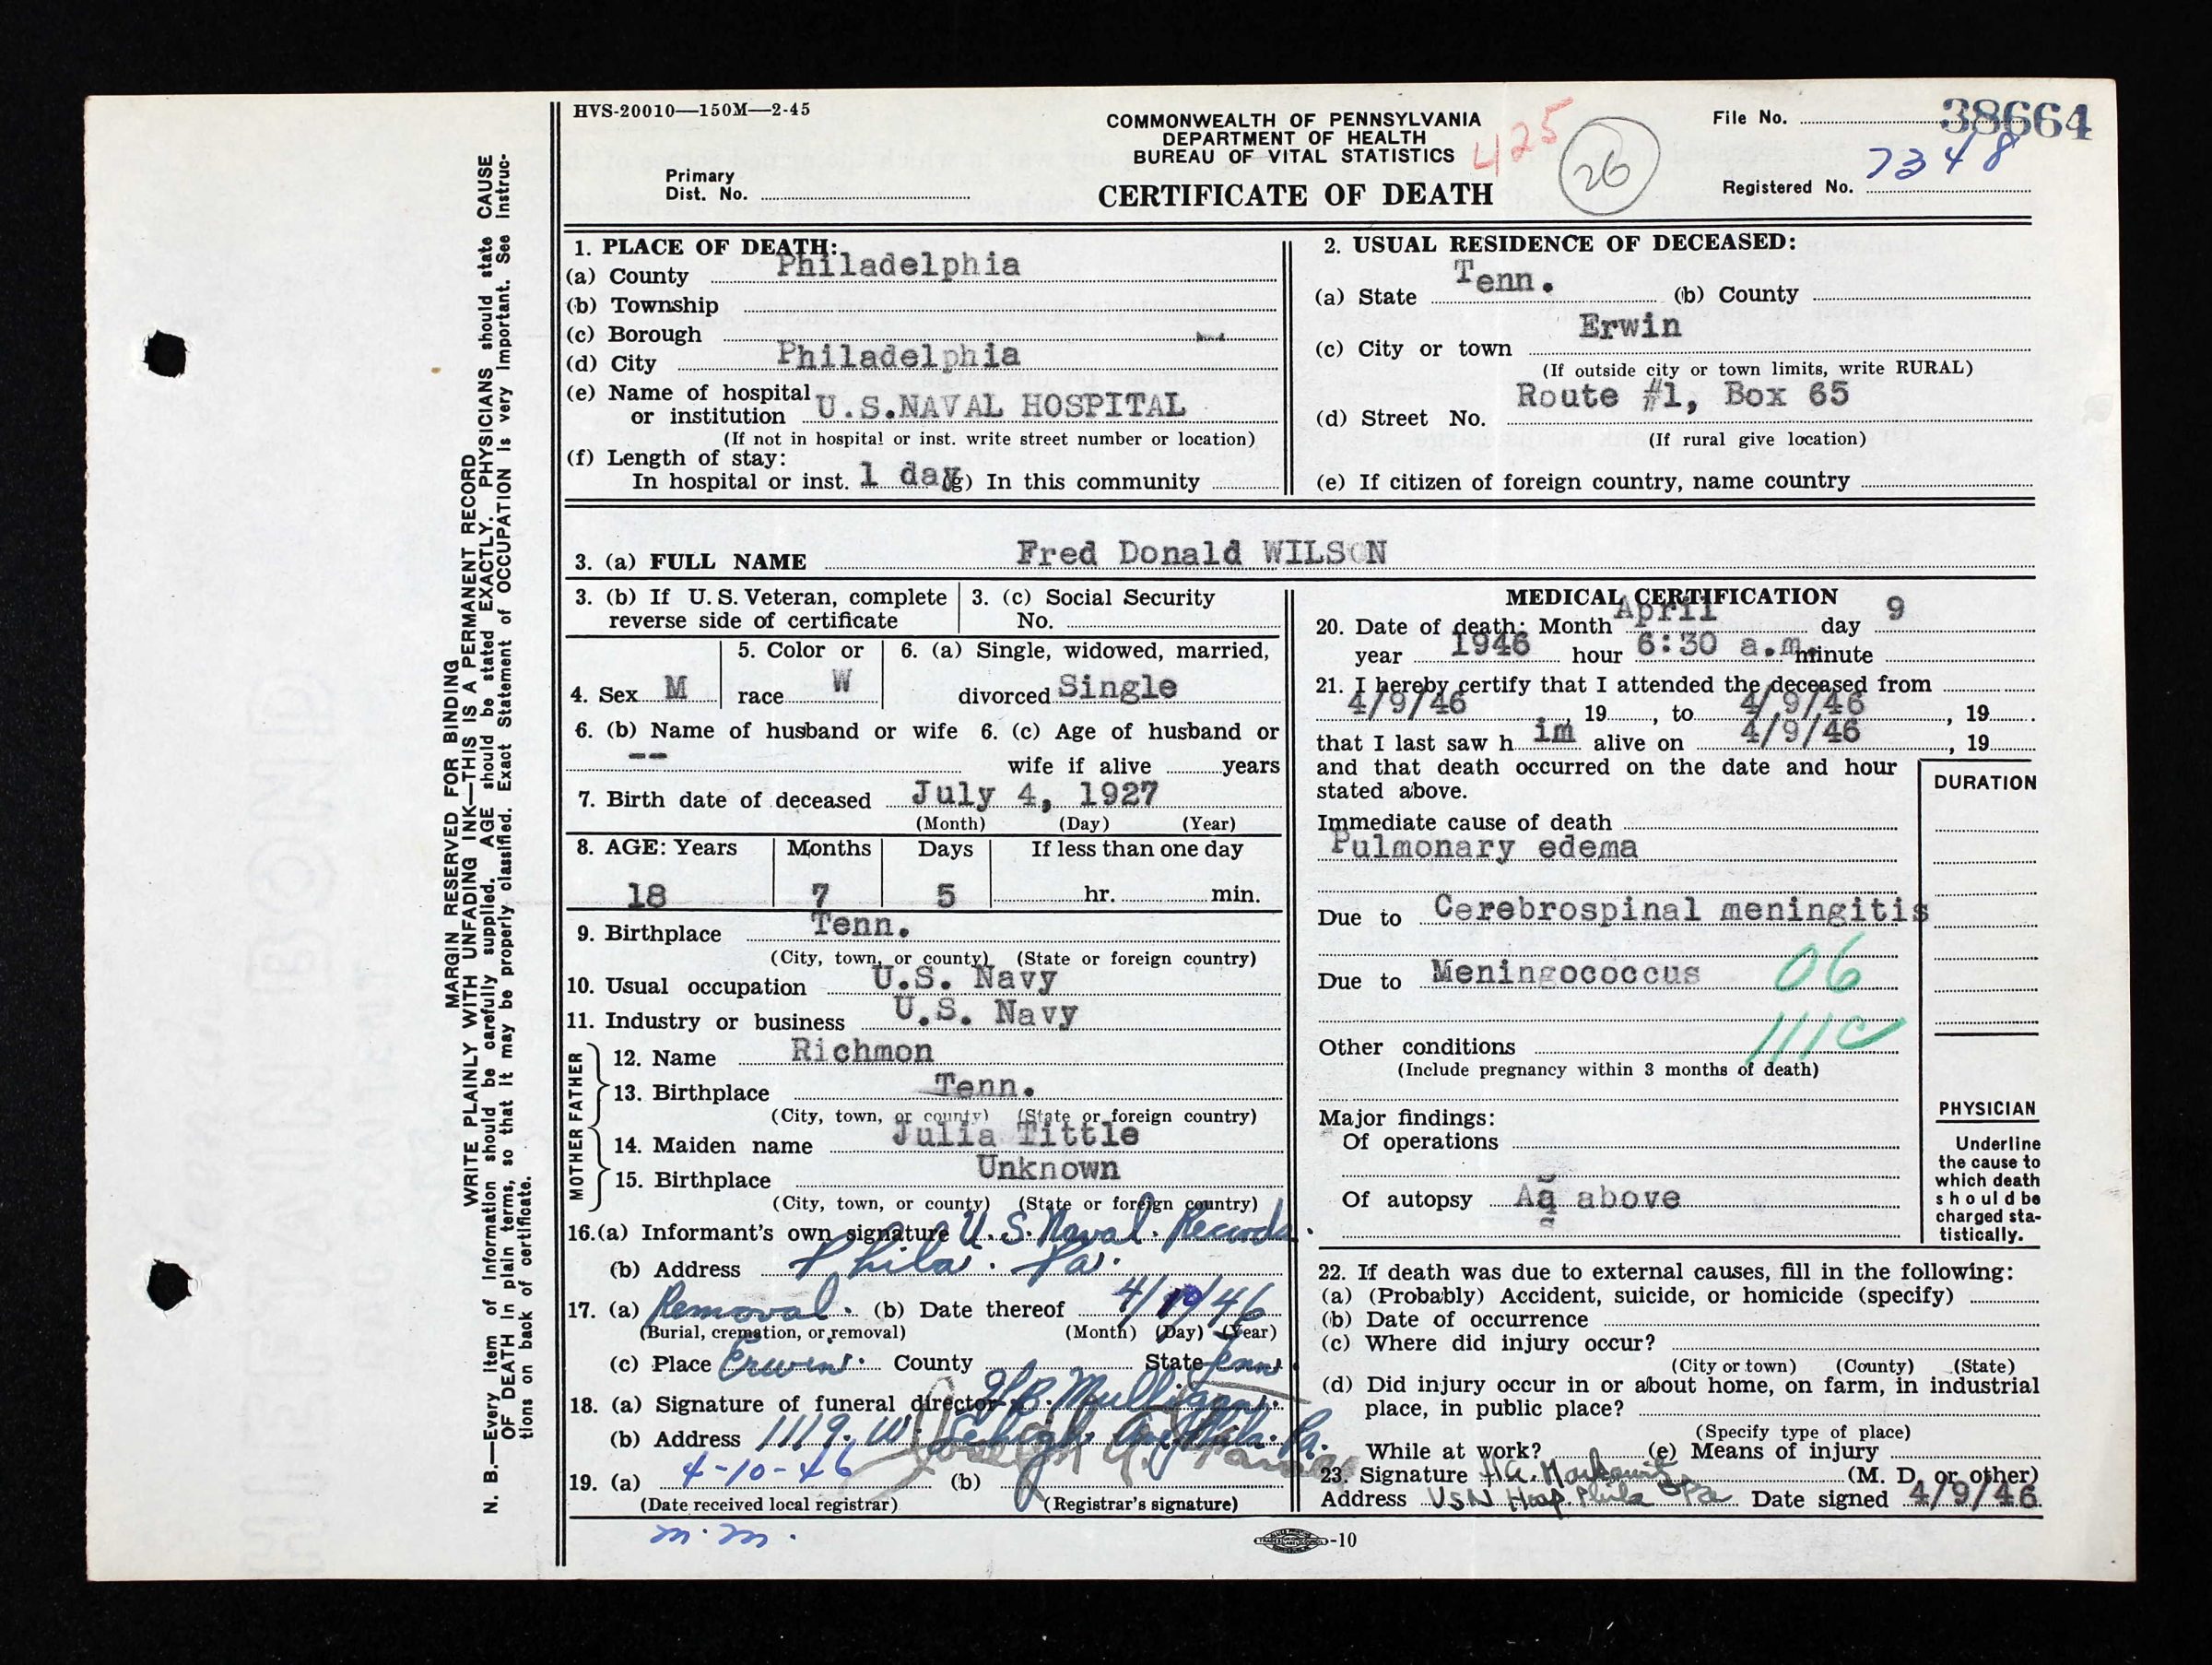 HVS-20010—150M—2-45
COMMONWEALTH OF PENNSYLVANIA
DEPARTMENT OF HEALTH
BUREAU OF VITAL STATISTICS
CERTIFICATE OF DEATH
425
26
File No. 38664
Registered No. 7348
Primary
Dist. No.
MARGIN RESERVED FOR BINDING
WRITE PLAINLY WITH UNFADING INK—THIS IS A PERMANENT RECORD
N. B.—Every item of information should be carefully supplied. AGE should be stated EXACTLY. PHYSICIANS should state CAUSE
OF DEATH in plain terms, so that it may be properly classified. Exact Statement of OCCUPATION is very important. See instruc-
tions on back of certificate.
1. PLACE OF DEATH:
(a) County Philadelphia
(b) Township
(c) Borough
(d) City Philadelphia
(e) Name of hospital
or institution U.S.NAVAL HOSPITAL
(If not in hospital or inst. write street number or location)
(f) Length of stay:
In hospital or inst. 1 day (g) In this community
2. USUAL RESIDENCE OF DECEASED:
(a) State Tenn. (b) County
(c) City or town Erwin
(If outside city or town limits, write RURAL)
(d) Street No. Route #1, Box 65
(If rural give location)
(e) If citizen of foreign country, name country
3. (a) FULL NAME Fred Donald WILSON
3. (b) If U. S. Veteran, complete
reverse side of certificate
3. (c) Social Security
No.
4. Sex M
5. Color or
race W
6. (a) Single, widowed, married,
divorced Single
6. (b) Name of husband or wife
--
6. (c) Age of husband or
wife if alive years
7. Birth date of deceased July 4, 1927
(Month) (Day) (Year)
8. AGE: Years Months Days If less than one day
18 7 5 hr. min.
9. Birthplace Tenn.
(City, town, or county) (State or foreign country)
10. Usual occupation U.S. Navy
11. Industry or business U.S. Navy
FATHER
12. Name Richmon
13. Birthplace Tenn.
(City, town, or county) (State or foreign country)
MOTHER
14. Maiden name Julia Tittle
15. Birthplace Unknown
(City, town, or county) (State or foreign country)
16.(a) Informant's own signature U. S. Naval Records.
(b) Address Phila. Pa.
17. (a) Removal. (b) Date thereof 4/10/46
(Burial, cremation, or removal) (Month) (Day) (Year)
(c) Place Erwin County State Tenn
18. (a) Signature of funeral director
(b) Address 1119 W. Lehigh Ave Phila. Pa.
19. (a) 4-10-46 (b)
(Date received local registrar) (Registrar's signature)
m.m.
MEDICAL CERTIFICATION
20. Date of death: Month April day 9
year 1946 hour 6:30 a.m. minute
21. I hereby certify that I attended the deceased from
4/9/46, 19, to 4/9/46, 19
that I last saw h im alive on 4/9/46, 19
and that death occurred on the date and hour
stated above.
DURATION
Immediate cause of death
Pulmonary edema
Due to Cerebrospinal meningitis
Due to Meningococcus 06
111c
Other conditions
(Include pregnancy within 3 months of death)
Major findings:
Of operations
Of autopsy As above
PHYSICIAN
Underline
the cause to
which death
should be
charged sta-
tistically.
22. If death was due to external causes, fill in the following:
(a) (Probably) Accident, suicide, or homicide (specify)
(b) Date of occurrence
(c) Where did injury occur?
(City or town) (County) (State)
(d) Did injury occur in or about home, on farm, in industrial
place, in public place?
(Specify type of place)
While at work? (e) Means of injury
23. Signature (M. D. or other)
Address USN Hosp Phila Pa Date signed 4/9/46
-10